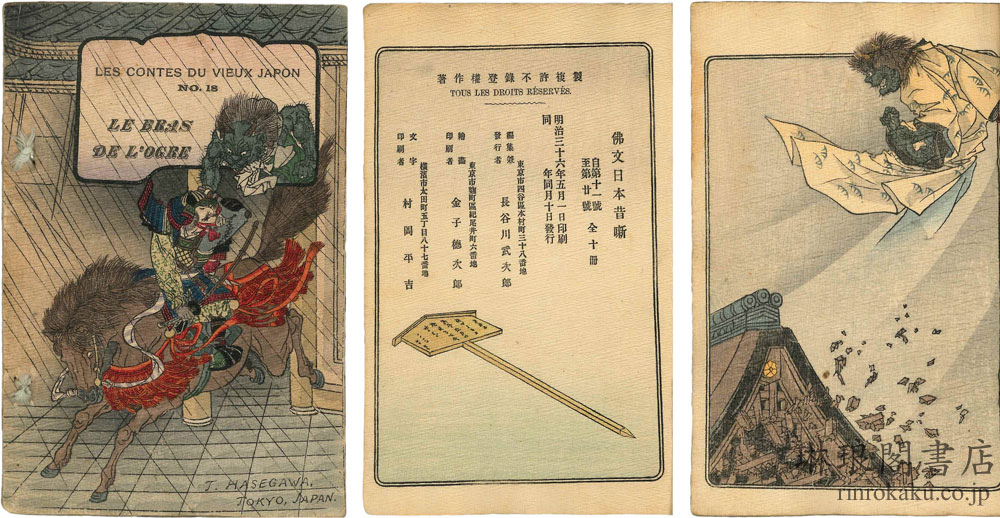 LES CONTES DU VIEUX JAPON
NO. 18
LE BRAS
DE L'OGRE
T. HASEGAWA,
TOKYO, JAPAN.
製複許不錄登權作著
TOUS LES DROITS RÉSERVÉS.
佛文日本昔噺
自第十一號
至第廿號
全十冊
明治三十六年五月一日印刷
同 年同月十日發行
東京市四谷區本村町三十八番地
編集兼
發行者
長谷川武次郎
東京市麹町區紀尾井町六番地
繪畫
印刷者
金子德次郎
橫濱市太田町五丁目八十七番地
文字
印刷者
村岡平吉
琳琅閣書店
rinrokaku.co.jp